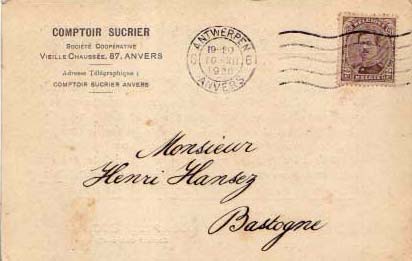 COMPTOIR SUCRIER
SOCIÉTÉ COOPÉRATIVE
VIEILLE CHAUSSÉE, 87, ANVERS
Adresse Télégraphique :
COMPTOIR SUCRIER ANVERS
ANTWERPEN
6 6
ANVERS
Monsieur
Henri Hansez
Bastogne